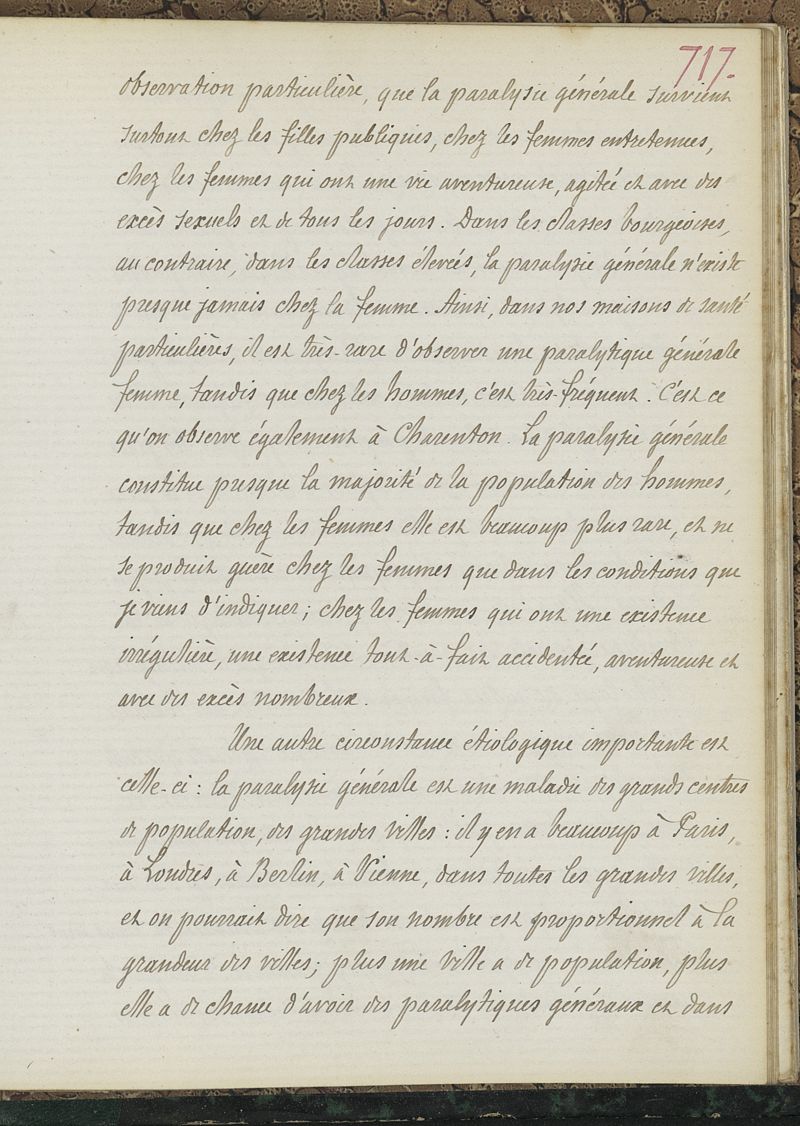 717.
observation particulière, que la paralysie générale survient
surtout chez les filles publiques, chez les femmes entretenues,
chez les femmes qui ont une vie aventureuse, agitée et avec des
excès sexuels et de tous les jours. Dans les classes bourgeoises,
au contraire, dans les classes élevées, la paralysie générale n'existe
presque jamais chez la femme. Ainsi, dans nos maisons de santé
particulières, il est très-rare d'observer une paralytique générale
femme, tandis que chez les hommes, c'est très-fréquent. C'est ce
qu'on observe également à Charenton. La paralysie générale
constitue presque la majorité de la population des hommes,
tandis que chez les femmes elle est beaucoup plus rare, et ne
se produit guère chez les femmes que dans les conditions que
je viens d'indiquer; chez les femmes qui ont une existence
irrégulière, une existence tout-à-fait accidentée, aventureuse et
avec des excès nombreux.
Une autre circonstance étiologique importante est
celle-ci: la paralysie générale est une maladie des grands centres
de population, des grandes villes: il y en a beaucoup à Paris,
à Londres, à Berlin, à Vienne, dans toutes les grandes villes,
et on pourrait dire que son nombre est proportionnel à la
grandeur des villes; plus une ville a de population, plus
elle a de chance d'avoir des paralytiques généraux et dans